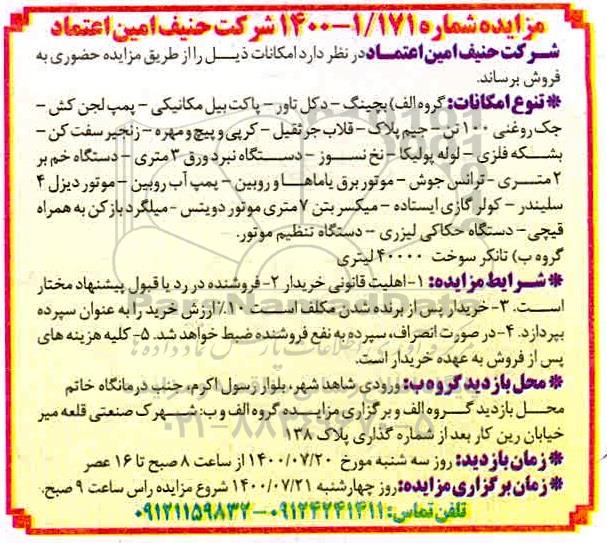 مزایده شماره ۱/۱۷۱-۱۴۰۰ شرکت حنیف امین اعتماد
شرکت حنیف امین اعتماد در نظر دارد امکانات ذیل را از طریق مزایده حضوری به
فروش برساند.
*تنوع امکانات: گروه الف) بچینگ - دکل تاور - پاکت بیل مکانیکی - پمپ لجن کش -
جک روغنی ۱۰۰ تن - جیم پلاک - قلاب جرثقیل - کرپی و پیچ و مهره - زنجیر سفت کن -
بشکه فلزی - لوله پولیکا - نخ نسوز - دستگاه نبرد ورق ۳ متری - دستگاه خم بر
۲ متری - ترانس جوش - موتور برق یاماها و روبین - پمپ آب روبین - موتور دیزل ۴
سلیندر - کولر گازی ایستاده - میکسر بتن ۷ متری موتور دویتس - میلگرد باز کن به همراه
قیچی - دستگاه حکاکی لیزری - دستگاه تنظیم موتور.
گروه ب) تانکر سوخت ۴۰۰۰۰ لیتری
*شرایط مزایده: ۱- اهلیت قانونی خریدار ۲- فروشنده در رد یا قبول پیشنهاد مختار
است. ۳- خریدار پس از برنده شدن مکلف است ۱۰٪ ارزش خرید را به عنوان سپرده
بپردازد. ۴- در صورت انصراف، سپرده به نفع فروشنده ضبط خواهد شد. ۵- کلیه هزینه های
پس از فروش به عهده خریدار است.
*محل بازدید گروه ب: ورودی شاهد شهر، بلوار رسول اکرم، جنب درمانگاه خاتم
محل بازدید گروه الف و برگزاری مزایده گروه الف و ب: شهرک صنعتی قلعه میر
خیابان رین کار بعد از شماره گذاری پلاک ۱۳۸
*زمان بازدید: روز سه شنبه مورخ ۱۴۰۰/۰۷/۲۰ از ساعت ۸ صبح تا ۱۶ عصر
*زمان برگزاری مزایده: روز چهارشنبه ۱۴۰۰/۰۷/۲۱ شروع مزایده راس ساعت ۹ صبح.
تلفن تماس: ۰۹۱۲۴۲۴۱۴۱۱-۰۹۱۲۱۱۵۹۸۳۲
ParsNamadData